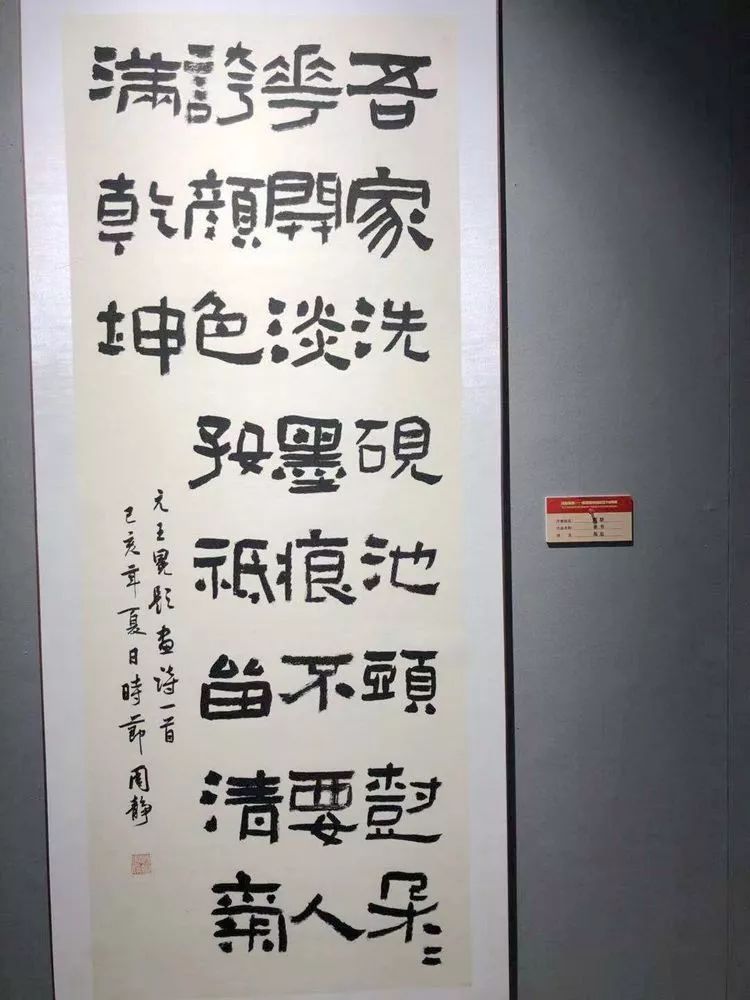 吾家洗硯池頭尌朵〻
華開淡墨痕不要人
誇顏色好祇留清氣
滿乾坤
元王冕题畫诗一首
己亥年夏日時節周静